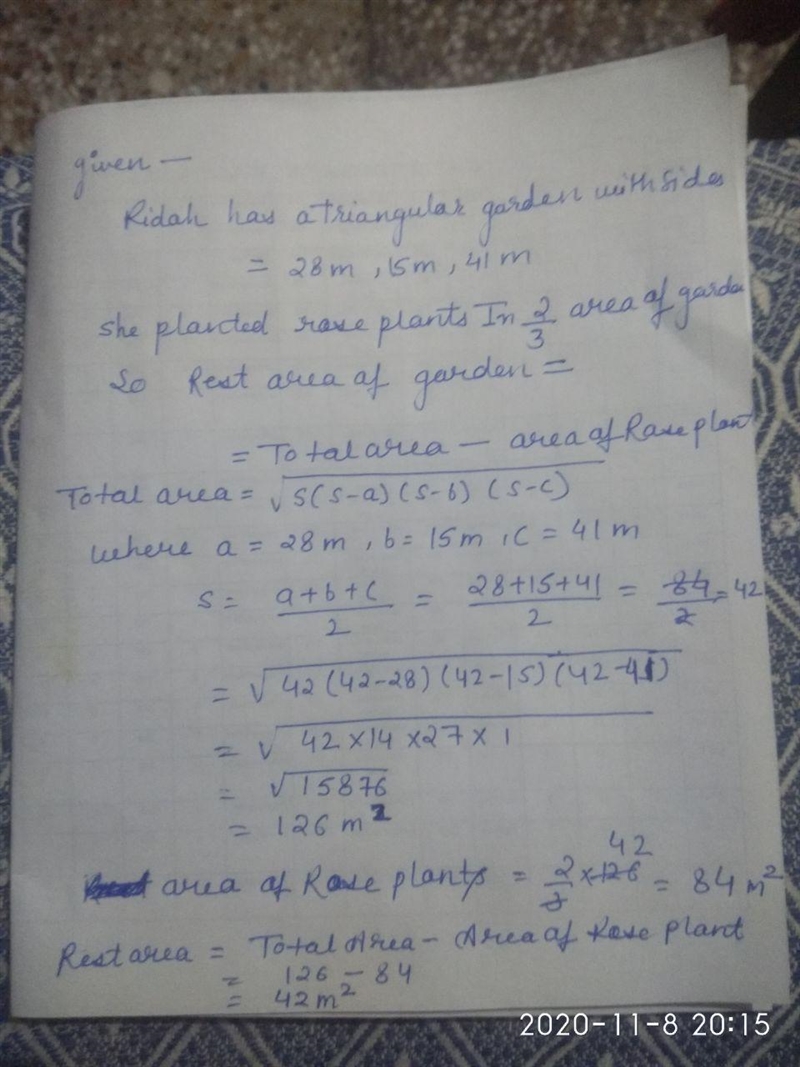 given —
Ridah has a triangular garden with sides
= 28m , 15m , 41 m
she planted rose plants In 2/3 area of garde
So Rest area of garden =
= Total area — area of Rose plant
Total area = √s(s-a) (s-b) (s-c)
where a = 28m , b = 15m , c = 41 m
s = a+b+c/2 = 28+15+41/2 = 84/2 = 42
= √42 (42-28) (42-15) (42-41)
= √42 ×14 ×27 × 1
= √15876
= 126 m²
area of Rose plants = 2/3 × 126 42 = 84 m²
Rest area = Total Area – Area of Rose plant
= 126 – 84
= 42 m²
2020-11-8 20:15